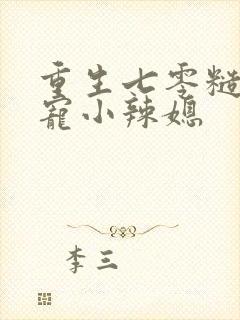 重生七零糙
宠小辣媳
李三